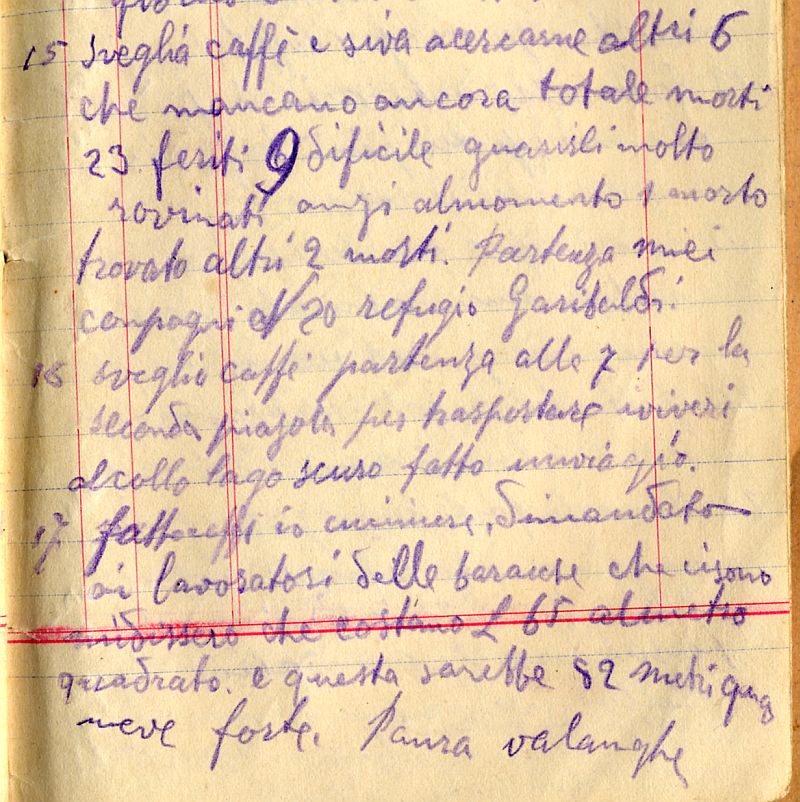 15 sveglia caffè e siva acercarne altri 6
che mancano ancora totale morti
23 feriti 9 dificile guarirli molto
rovinati anzi almomento 1 morto
trovato altri 2 morti. Partenza miei
conpagni 20 refugio Garibaldi.
16 sveglia caffe partenza alle 7 per la
seconda piazola per trasportare iviveri
alcollo lago scuro fatto unviagio.
17 io dimandato
ai lavoratori delle baracche che cisono
midissero che costano L 65 almetro
quadrato. e questa sarebbe 82 metri qua
neve forte. Paura valanghe